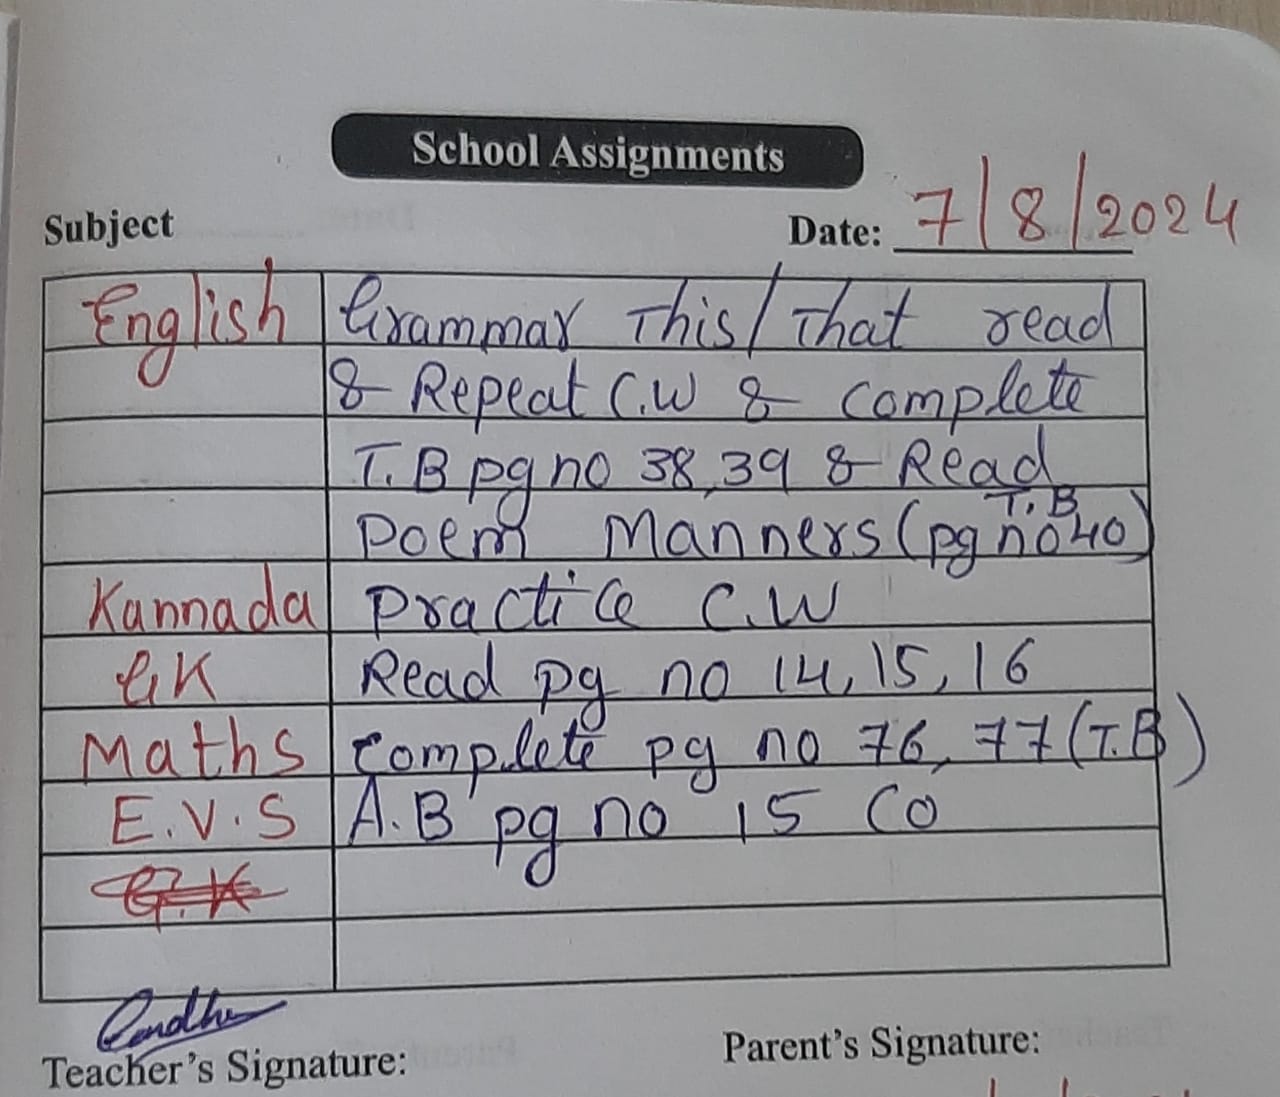 School Assignments
Subject Date: 7/8/2024
English Grammar This/That read
& Repeat C.W & complete
T.B pg no 38,39 & Read
Poem Manners (T.B pg no 40)
Kannada Practice C.W
GK Read pg no 14,15,16
Maths complete pg no 76, 77 (T.B)
E.V.S A.B pg no 15 CO
G.K
Teacher's Signature: Parent's Signature: